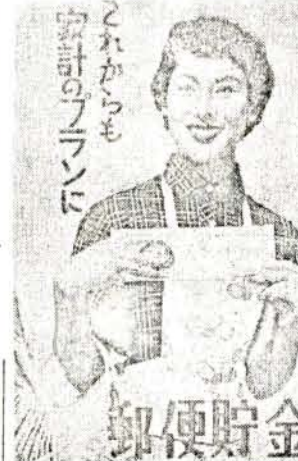 これからも
家計のプランに
郵便貯金